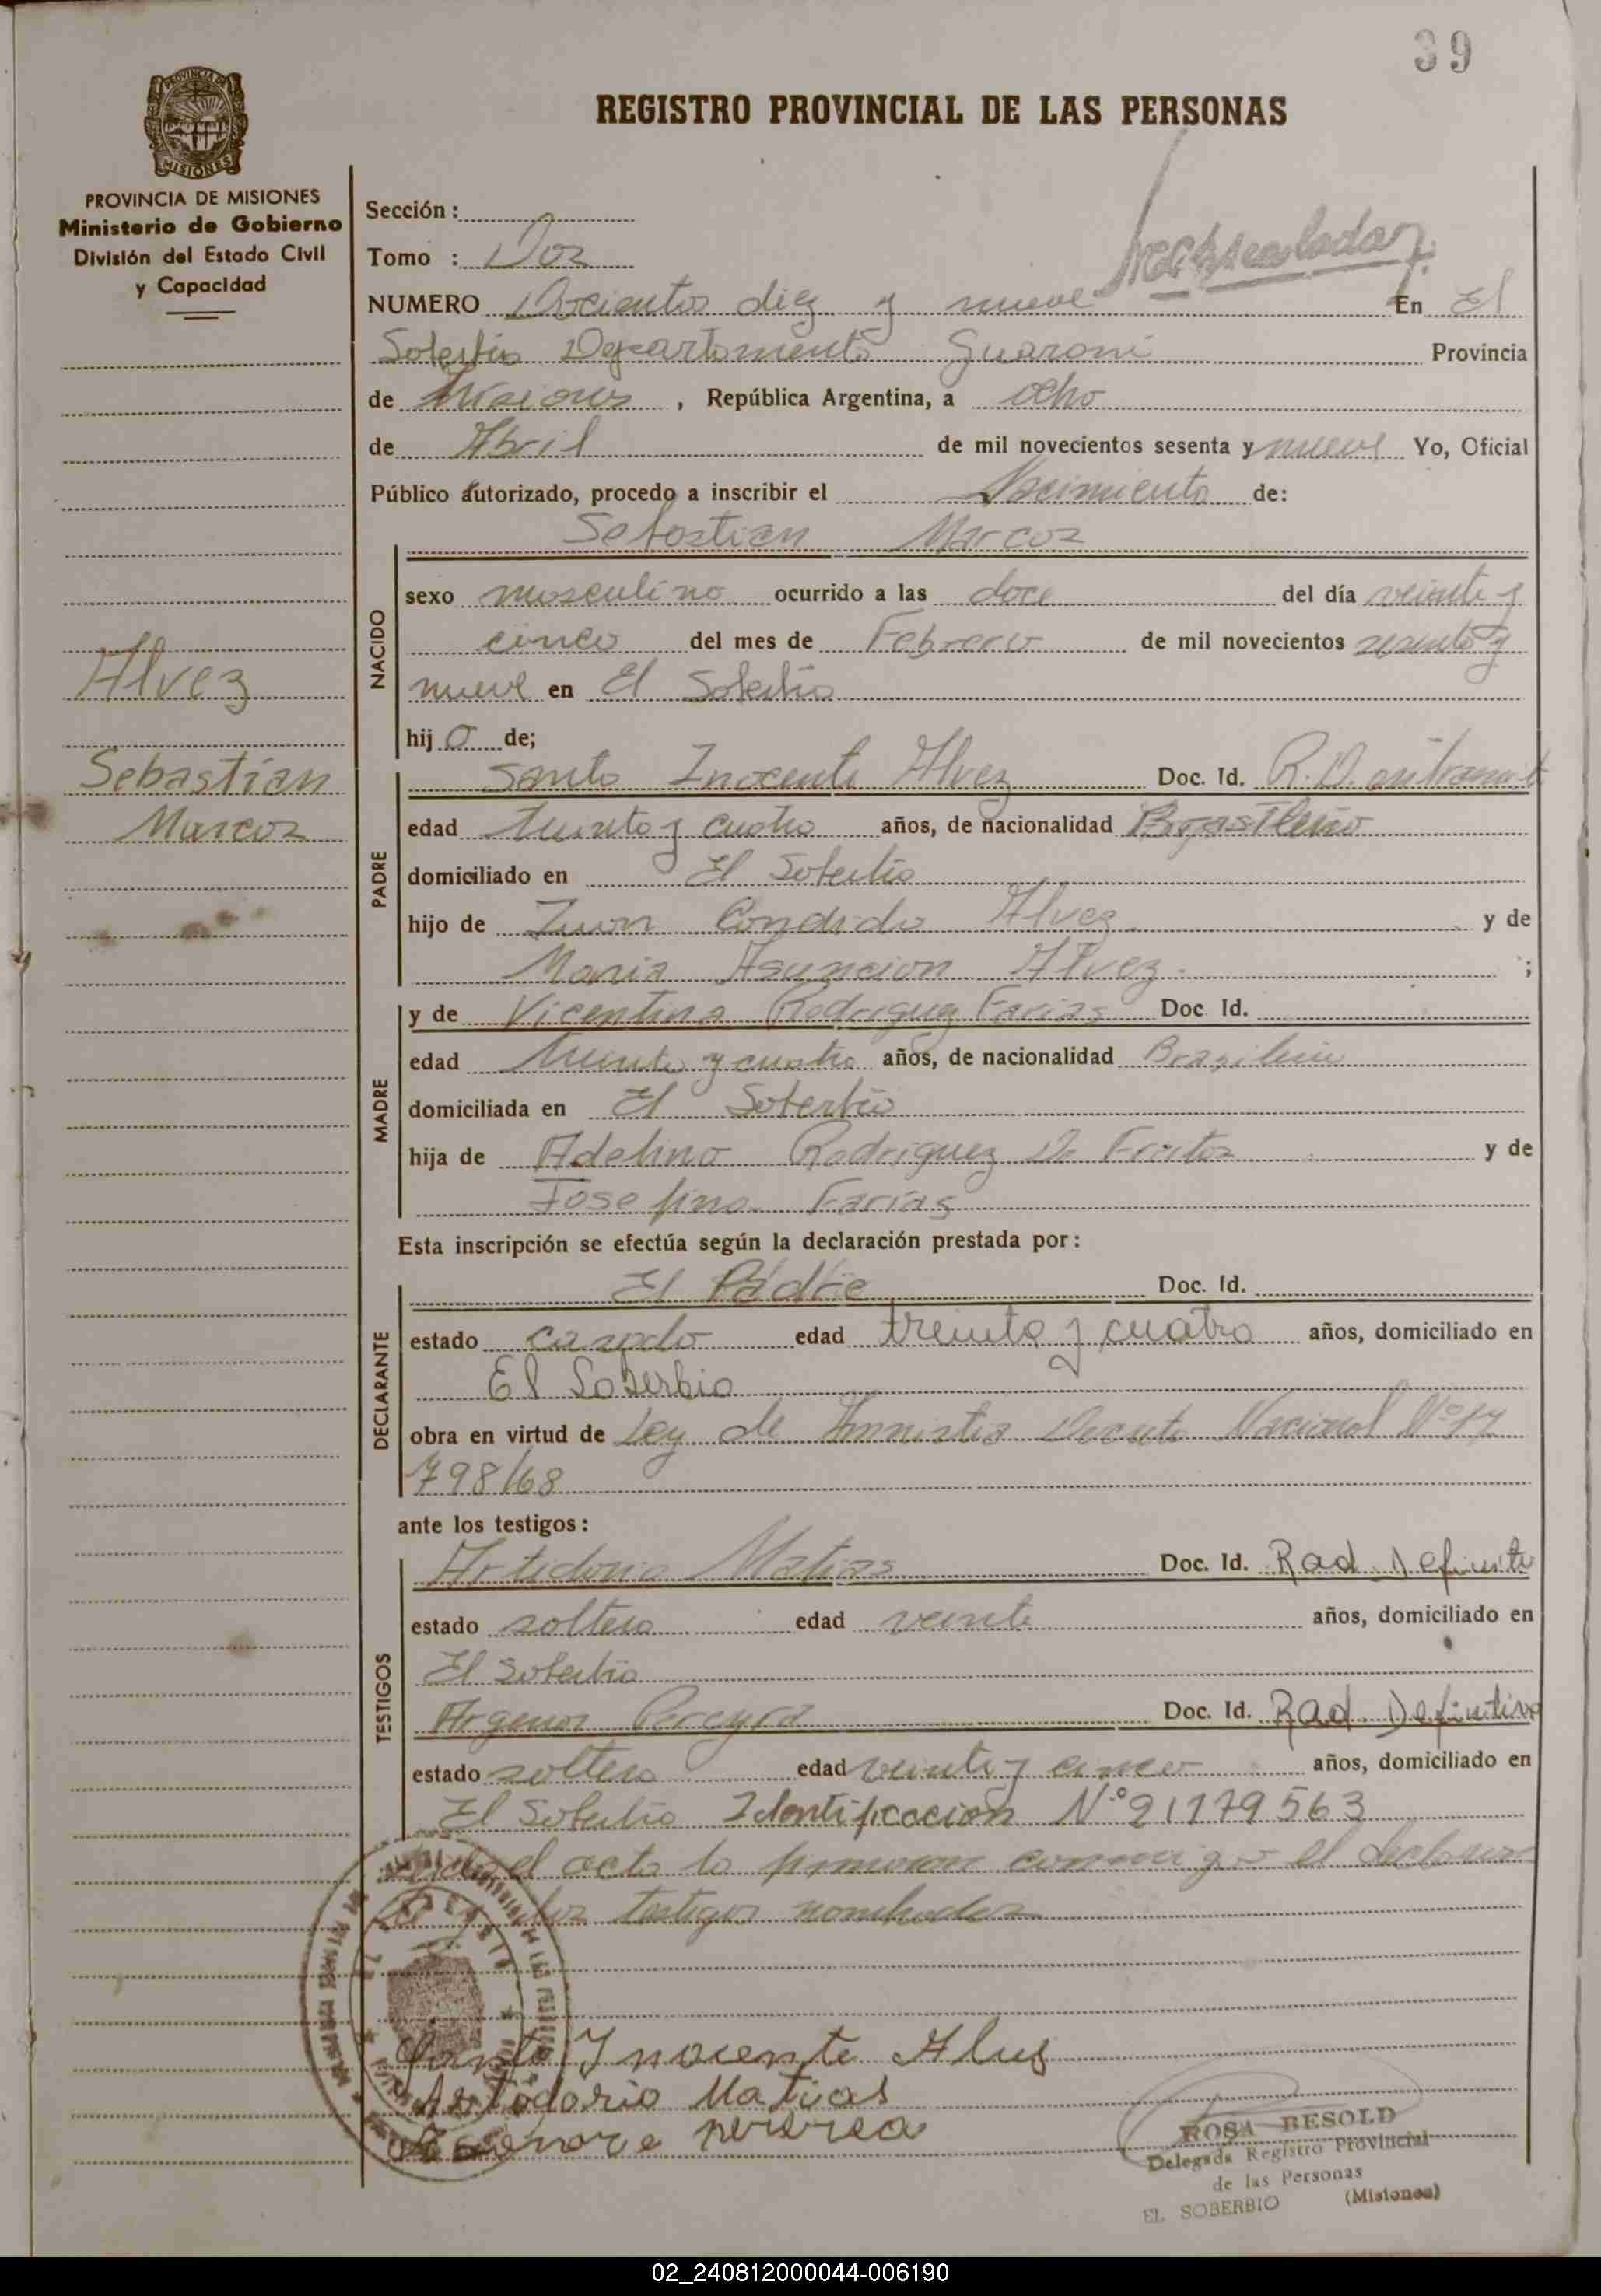 39
REGISTRO PROVINCIAL DE LAS PERSONAS
PROVINCIA DE MISIONES
MISIONES
PROVINCIA DE MISIONES
Ministerio de Gobierno
División del Estado Civil
y Capacidad
Sección :
Tomo : Dos
NUMERO Docientos diez y nueve En El
Soberbio Departamento Guarani Provincia
de Misiones , República Argentina, a ocho
de Abril de mil novecientos sesenta y nueve Yo, Oficial
Público autorizado, procedo a inscribir el Nacimiento de:
Sebastian Marcos
NACIDO
sexo masculino ocurrido a las doce del día veinte y
cinco del mes de Febrero de mil novecientos sesenta y
nueve en El Soberbio
hij o de;
Alvez
Sebastián
Marcos
PADRE
Santo Inocente Alvez Doc. Id. R.D.
edad treinta y cuatro años, de nacionalidad Brasileño
domiciliado en El Soberbio
hijo de Juan Condido Alvez y de
Maria Asuncion Alvez ;
MADRE
y de Vicentina Rodriguez Farias Doc. Id.
edad treinta y cuatro años, de nacionalidad Brazileña
domiciliada en El Soberbio
hija de Adelino Rodriguez De Freitas y de
Josefina Farias
Esta inscripción se efectúa según la declaración prestada por :
DECLARANTE
El Padre Doc. Id.
estado casado edad treinta y cuatro años, domiciliado en
El Soberbio
obra en virtud de Ley de Amnistia Decreto Nacional Nº 17
798/68
ante los testigos :
TESTIGOS
Artidorio Matias Doc. Id. Rad. Definitiva
estado soltero edad veinte años, domiciliado en
El Soberbio
Argenor Pereyra Doc. Id. Rad. Definitiva
estado soltero edad veinte y cinco años, domiciliado en
El Soberbio Identificacion Nº 21179563
el acto lo firmaron conmigo el declarante
los testigos nombrados
Santo Inocente Alves
Artidorio Matias
pererea
ROSA BESOLD
Delegada Registro Provincial
de las Personas
EL SOBERBIO (Misiones)
02_240812000044-006190